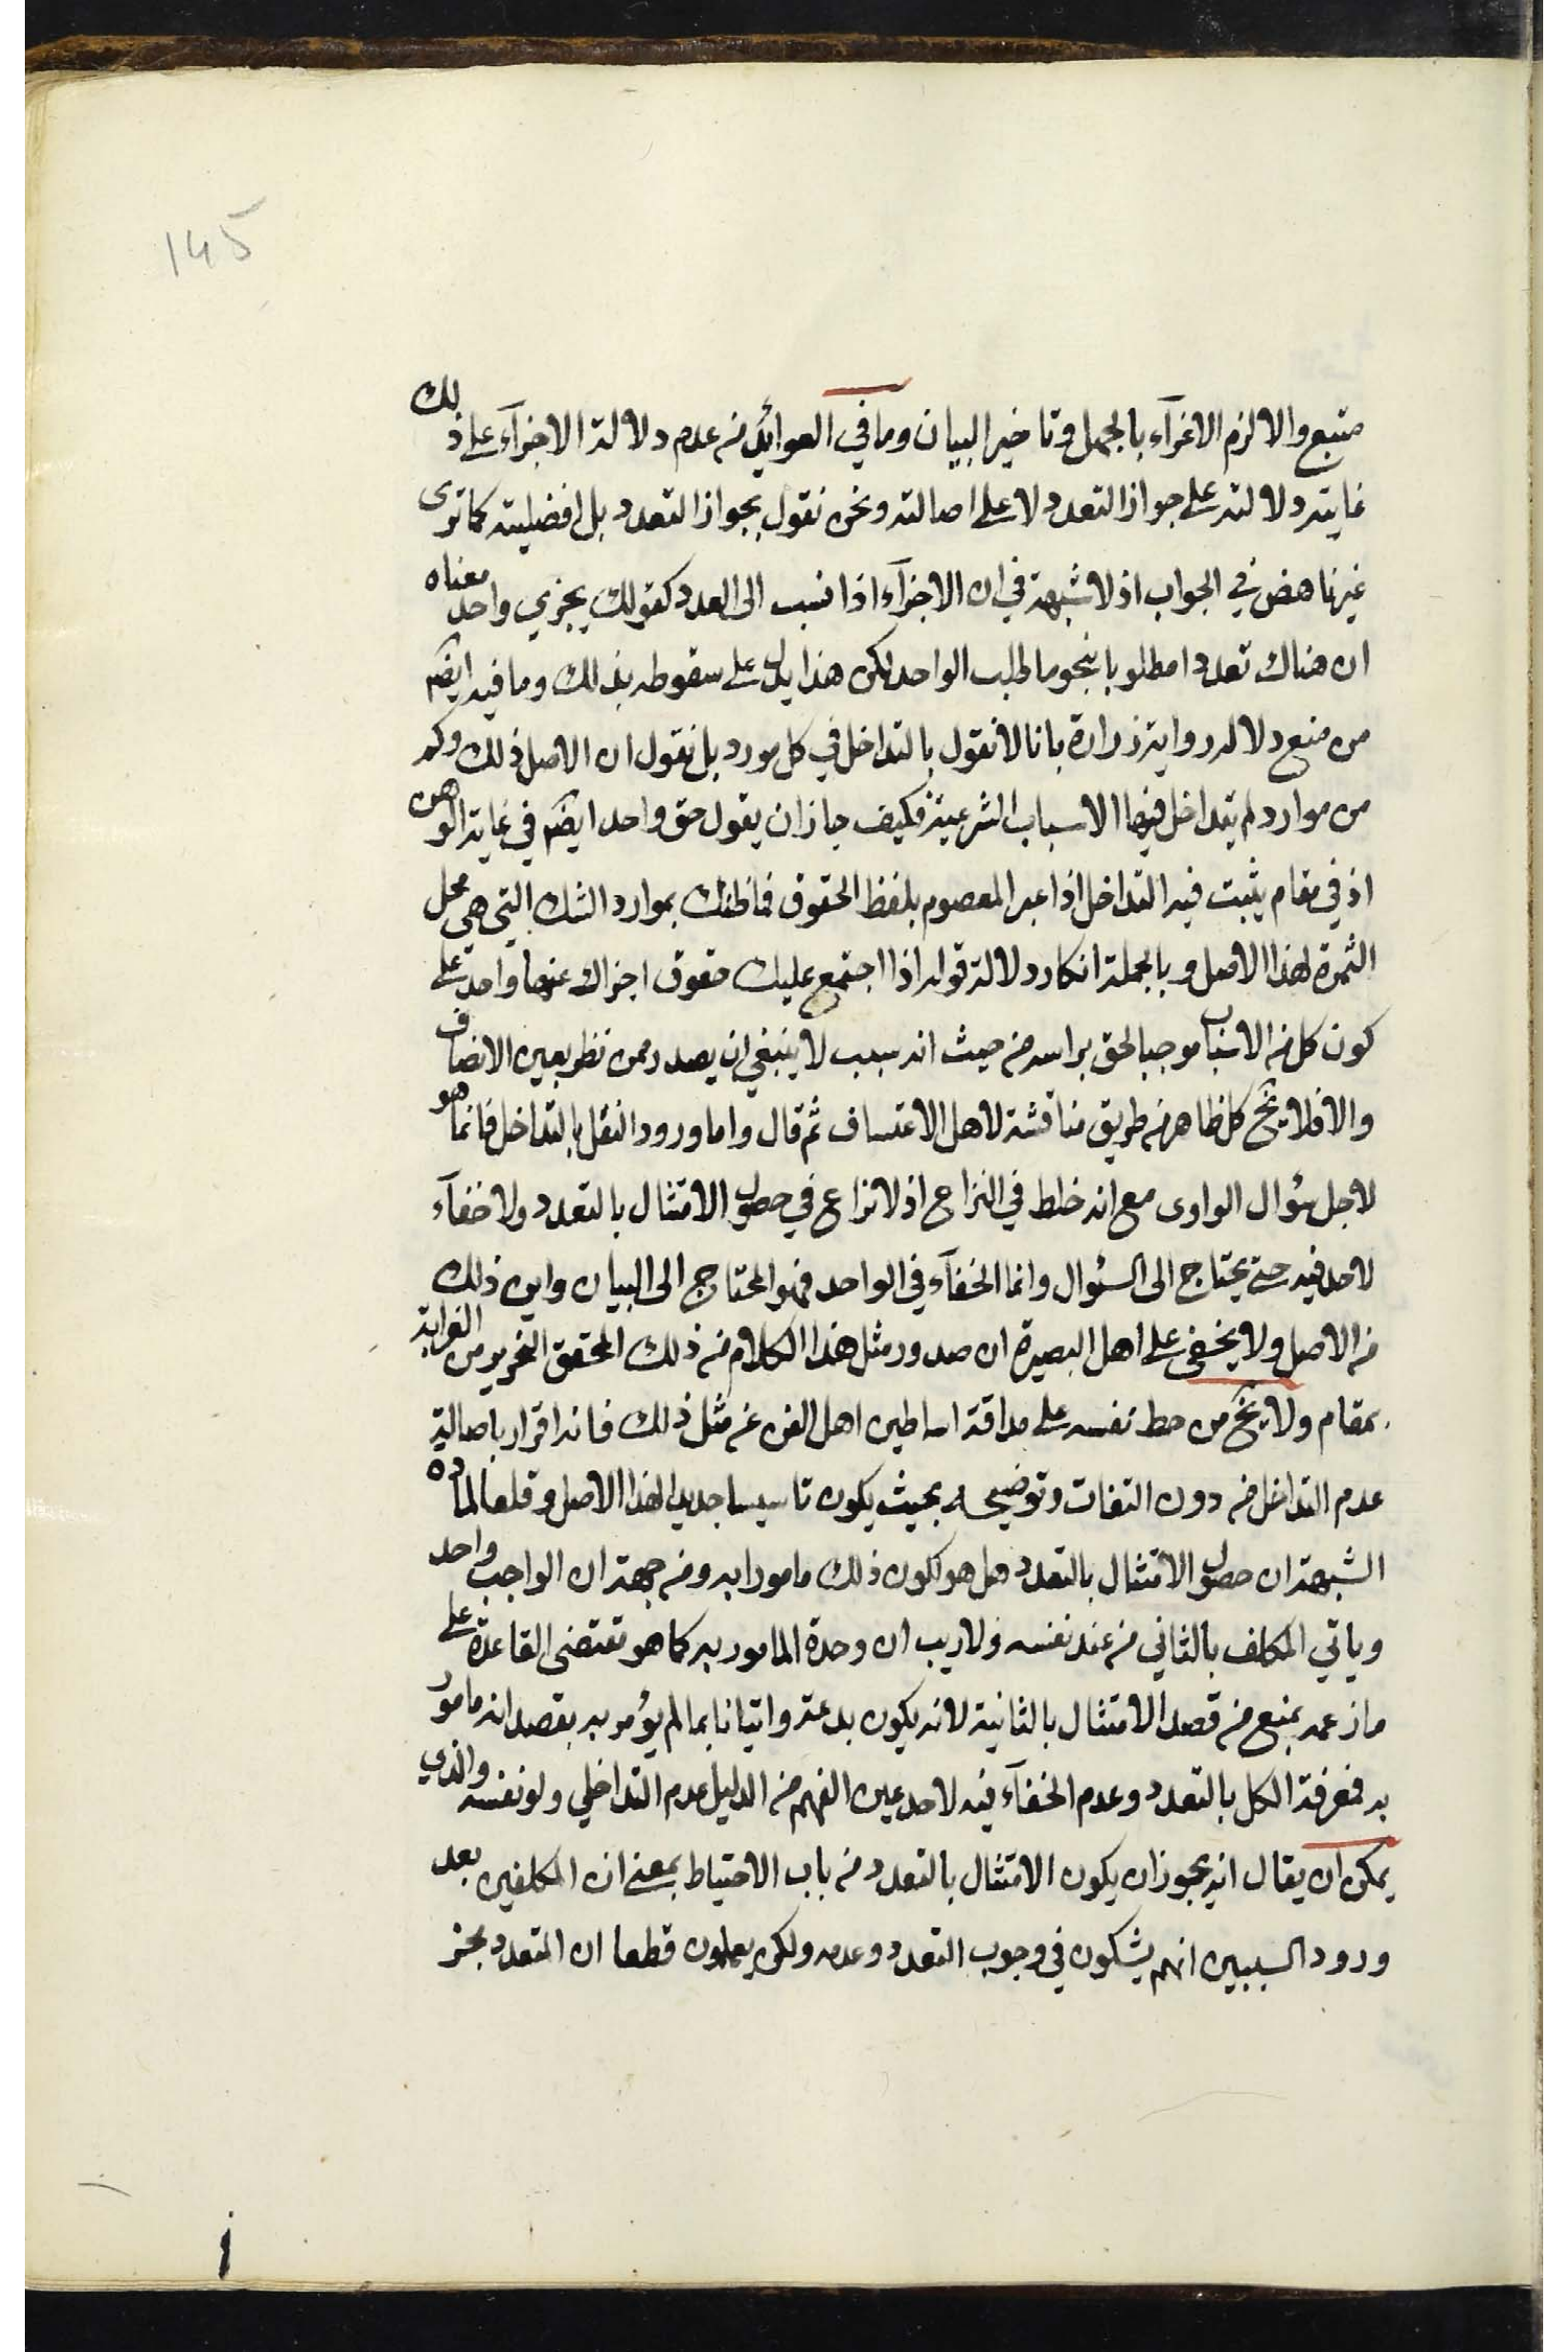 145
متبع والا لزم الاغرآء بالجهل وتاخير البيان وما في العوائد من عدم دلالة الاجزآء على ذلك
غايته دلالته على جواز التعدد لا على اصالته ونحن نقول بجواز التعدد بل افضليته كما ترى
غير ناهض في الجواب اذ لا شبهة في ان الاجزآء اذا نسب الى العدد كقولك يجزي واحد معناه
ان هناك تعددا مطلوبا بنحو ما طلب الواحد لكن هذا يدل على سقوطه بذلك وما فيه ايضا
من منع دلالة رواية زرارة بانا لا نقول بالتداخل في كل مورد بل نقول ان الاصل ذلك وكم
من موارد لم يتداخل فيها الاسباب الشرعية فكيف جاز ان يقول حق واحد ايضا في غاية الوهن
اذ في مقام يثبت فيه التداخل اذا عبر المعصوم بلفظ الحقوق فما ظنك بموارد الشك التي هي محل
الثمرة لهذا الاصل وبالجملة انكار دلالة قوله اذا اجتمع عليك حقوق اجزاك عنها واحد على
كون كل من الاسباب موجبا لحق براسه من حيث انه سبب لا ينبغي ان يصدر ممن نظر بعين الانصاف
والا فلا يخ كل ظاهر من طريق مناقشة لاهل الاعتساف ثم قال واما ورود النقل بالتداخل فانما هو
لاجل سؤال الراوى مع انه خلط في النزاع اذ لا نزاع في حصول الامتثال بالتعدد ولا خفآء
لاحد فيه حتى يحتاج الى السئوال وانما الخفآء في الواحد فهو المحتاج الى البيان واين ذلك
من الاصل ولا يخفى على اهل البصيرة ان صدور مثل هذا الكلام من ذلك المحقق النحرير من الغرابة
بمقام ولا يخ من حط نفسه على مداقة اساطين اهل الفن عن مثل ذلك فانه اقرار باصالة
عدم التداخل من دون التفات وتوضيحه بحيث يكون تاسيسا جديدا لهذا الاصل وقلعا لماده
الشبهة ان حصول الامتثال بالتعدد هل هو لكون ذلك مامورا به ومن جهة ان الواجب واحد
وياتي المكلف بالثاني من عند نفسه ولا ريب ان وحدة المامور به كما هو مقتضى القاعدة على
ما زعمه يمنع من قصد الامتثال بالثانية لانه يكون بدعة واتيانا بما لم يؤمر به بقصد انه مامور
به فمعرفة الكل بالتعدد وعدم الخفآء فيه لاحد عين الفهم من الدليل عدم التداخلي ولو نفسه والذي
يمكن ان يقال انه يجوز ان يكون الامتثال بالتعدد من باب الاحتياط بمعنى ان المكلفين بعد
ورود السببين انهم يشكون في وجوب التعدد وعدمه ولكن يعلمون قطعا ان المتعدد مجز